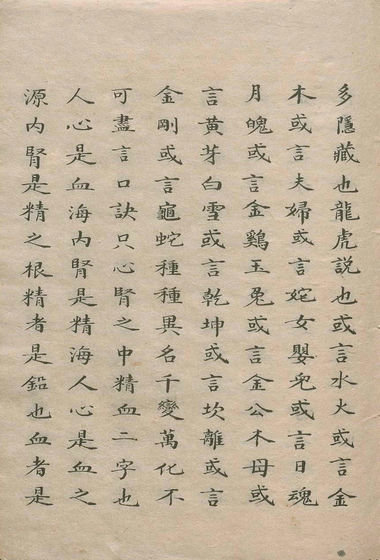 多隱藏也龍虎説也或言水火或言金
木或言夫婦或言姹女嬰兒或言日魂
月魄或言金鷄玉兔或言金公木母或
言黃芽白雪或言乾坤或言坎離或言
金剛或言龜蛇種種異名千變萬化不
可盡言口訣只心腎之中精血二字也
人心是血海内腎是精海人心是血之
源内腎是精之根精者是鉛也血者是